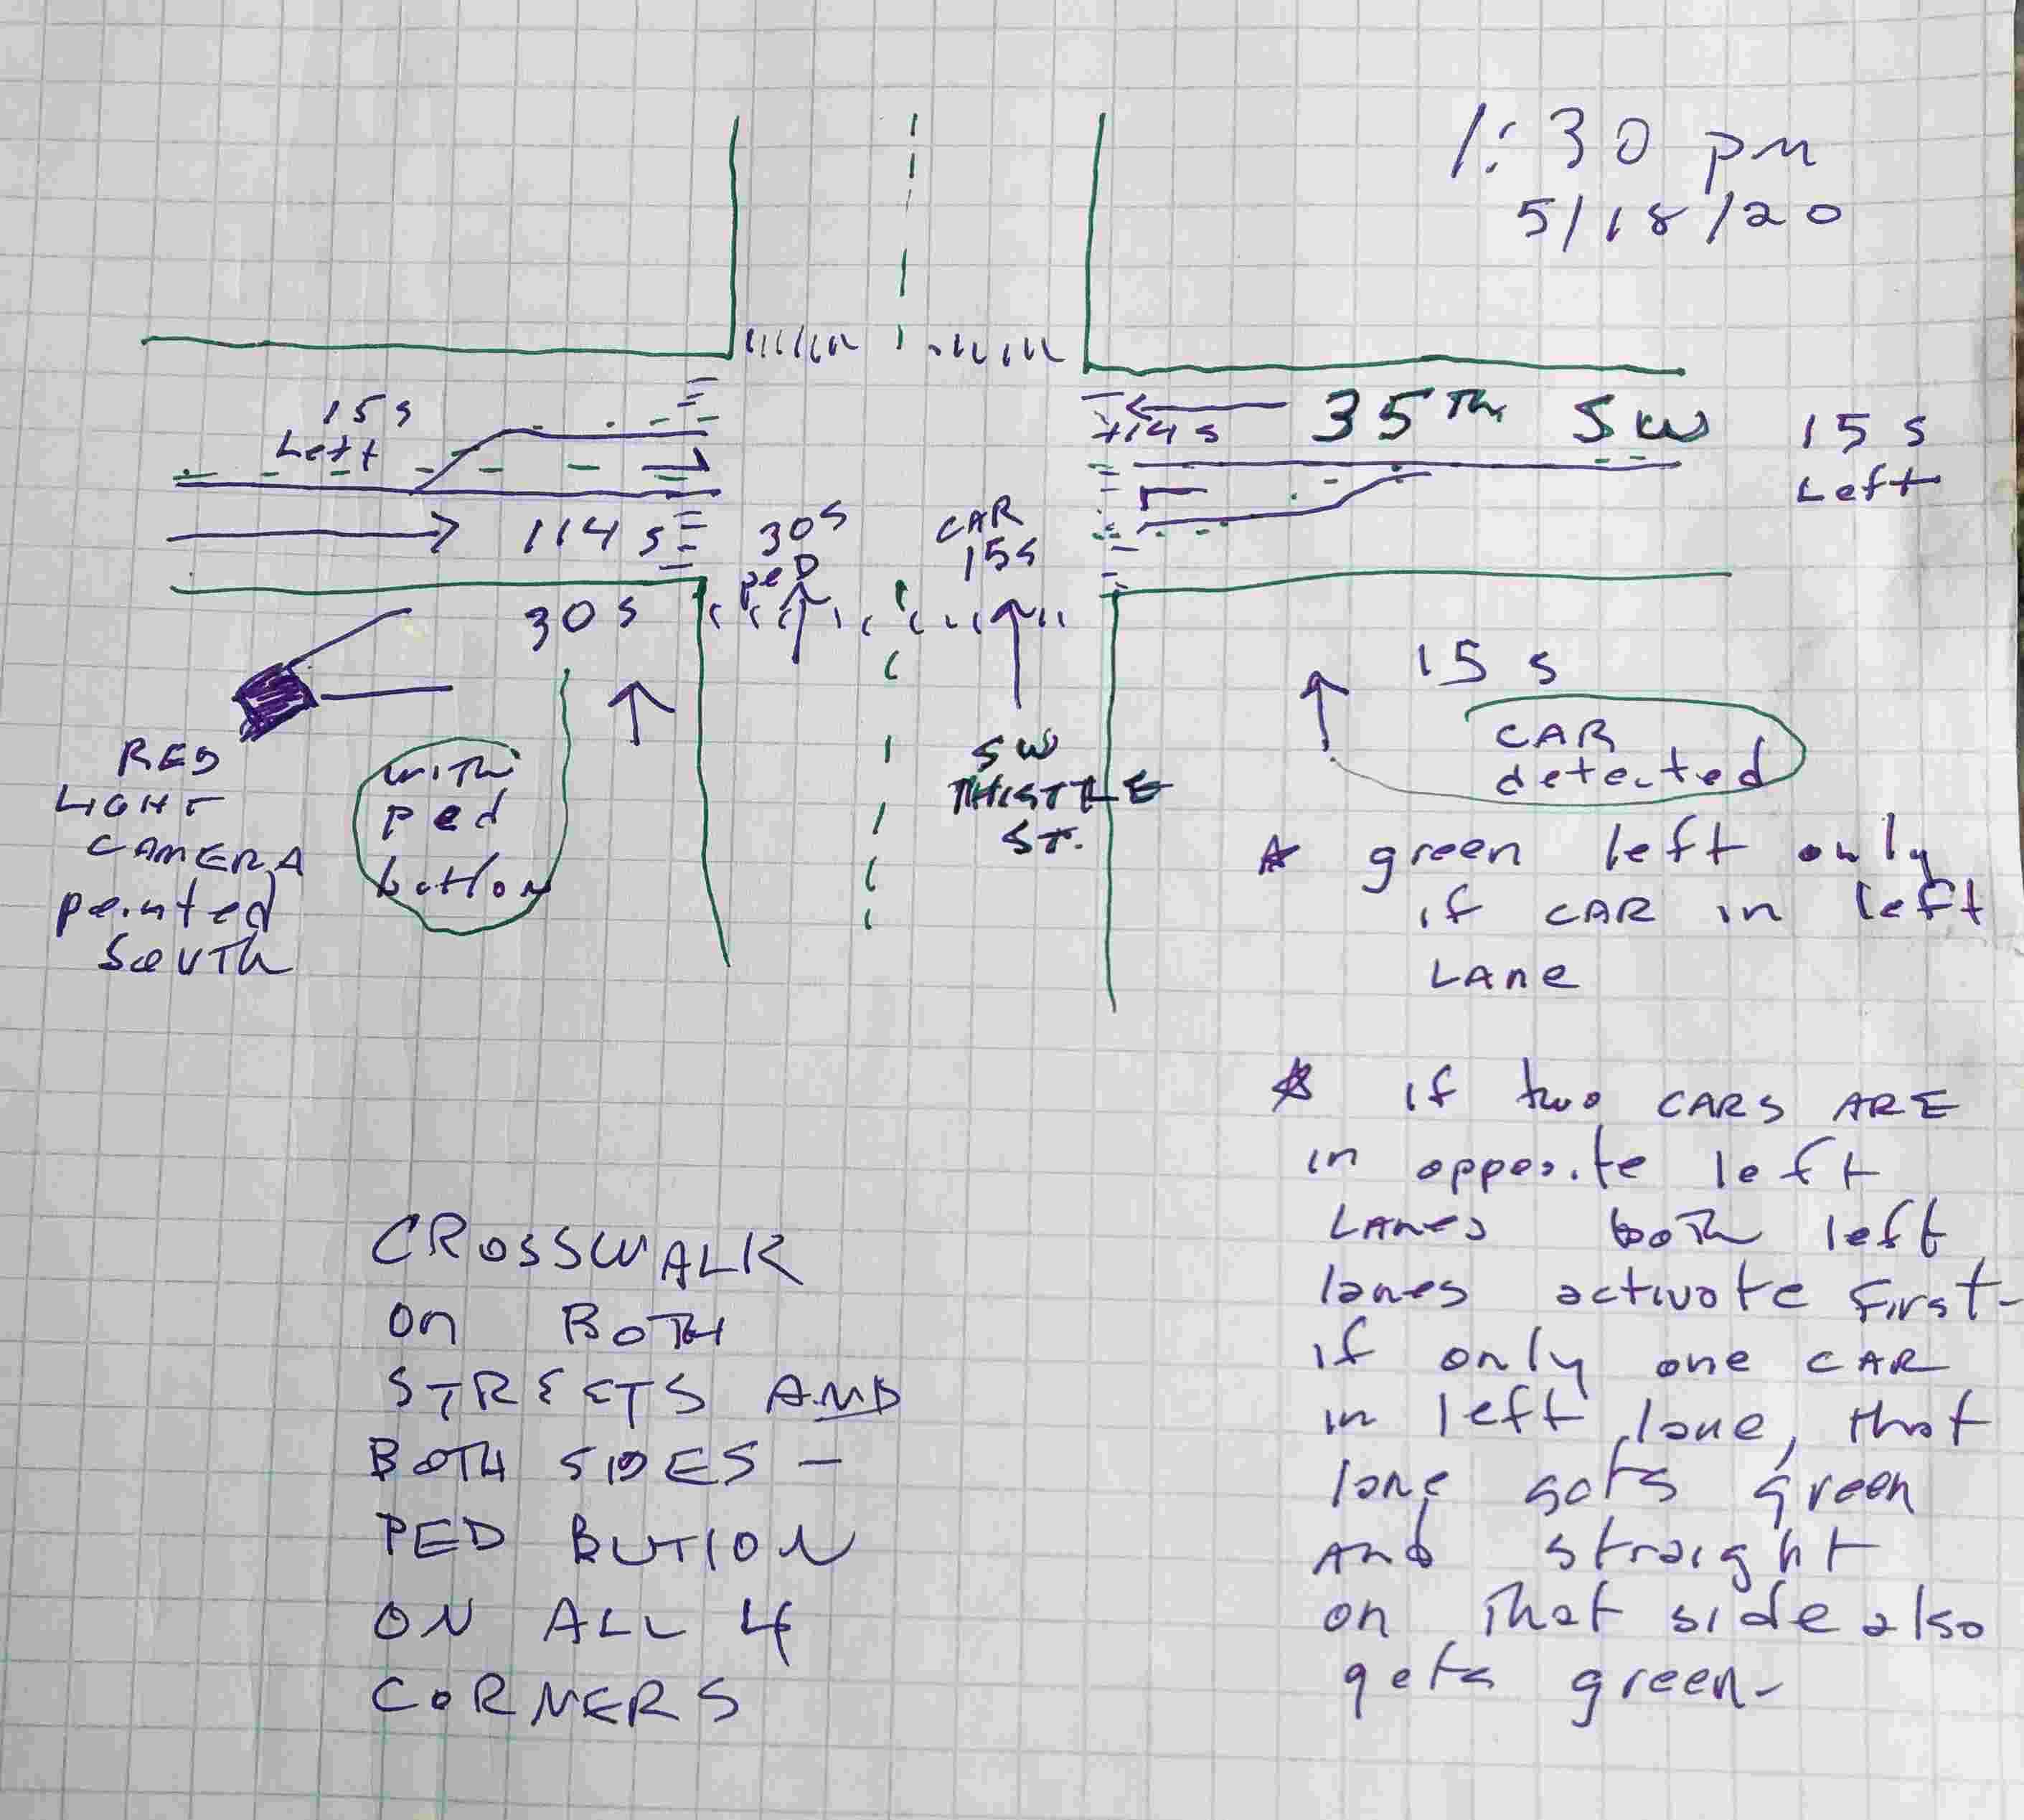 1:30 pm
5/18/20
15 s
Left
114 s
35Th SW
15 s
Left
114 s
30s
ped
CAR
15s
30 s
15 s
CAR
detected
RED
LIGHT
CAMERA
pointed
SouTh
with
ped
button
SW
THISTLE
ST.
* green left only
if CAR in left
LAne
* if two CARS ARE
in opposite left
LANes boTh left
lanes activate first-
if only one CAR
in left lane, that
lane gets green
And straight
on That side also
gets green-
CROSSWALK
on BOTH
STREETS AND
BOTH SIDES -
PED BUTTON
ON ALL 4
CORNERS